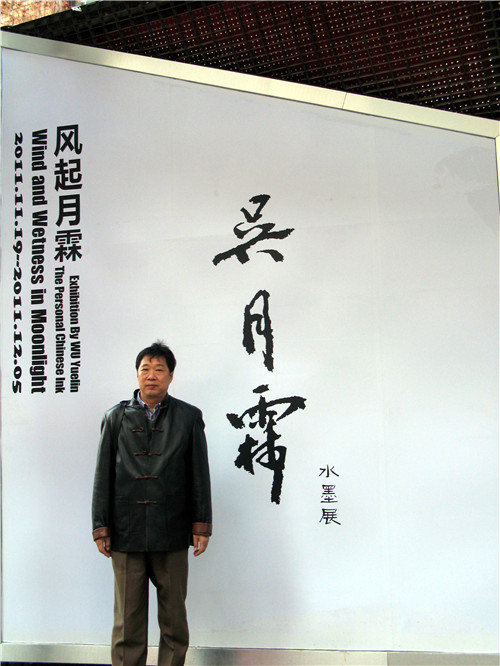 风起月霖
Exhibition By WU Yuelin
The Personal Chinese Ink
Wind and Wetness in Moonlight
2011.11.19--2011.12.05
吴月霖
水墨展